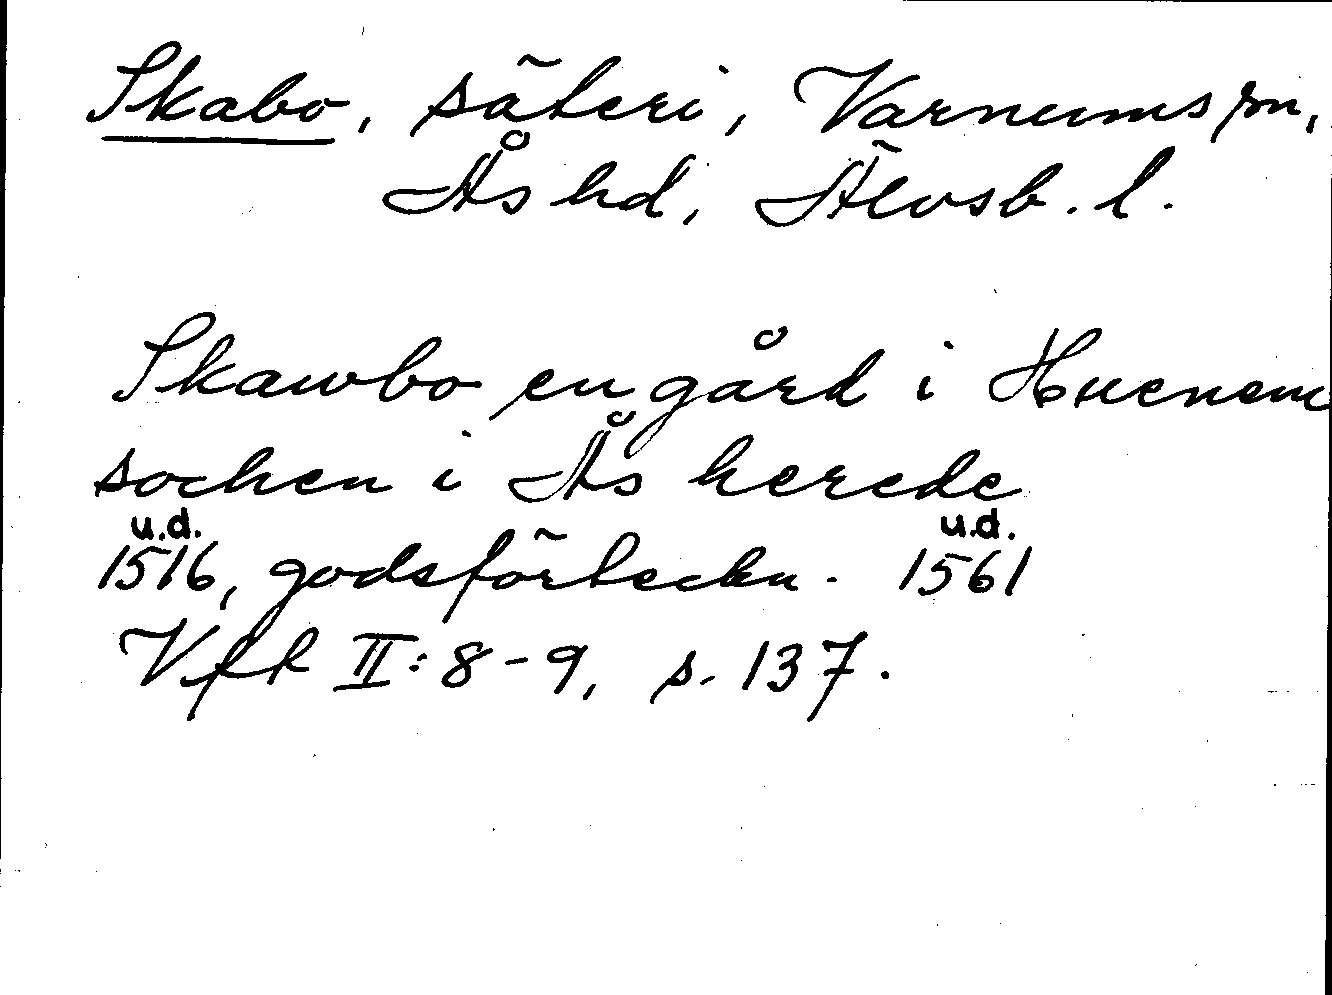 Skabo, säteri, Varnums sn,
Ås hd, Älvsb. l.
Skawbo en gård i
sochen i Ås herede
u.d. u.d.
1516, godsförteckn. 1561
Vft II: 8-9, s. 137.